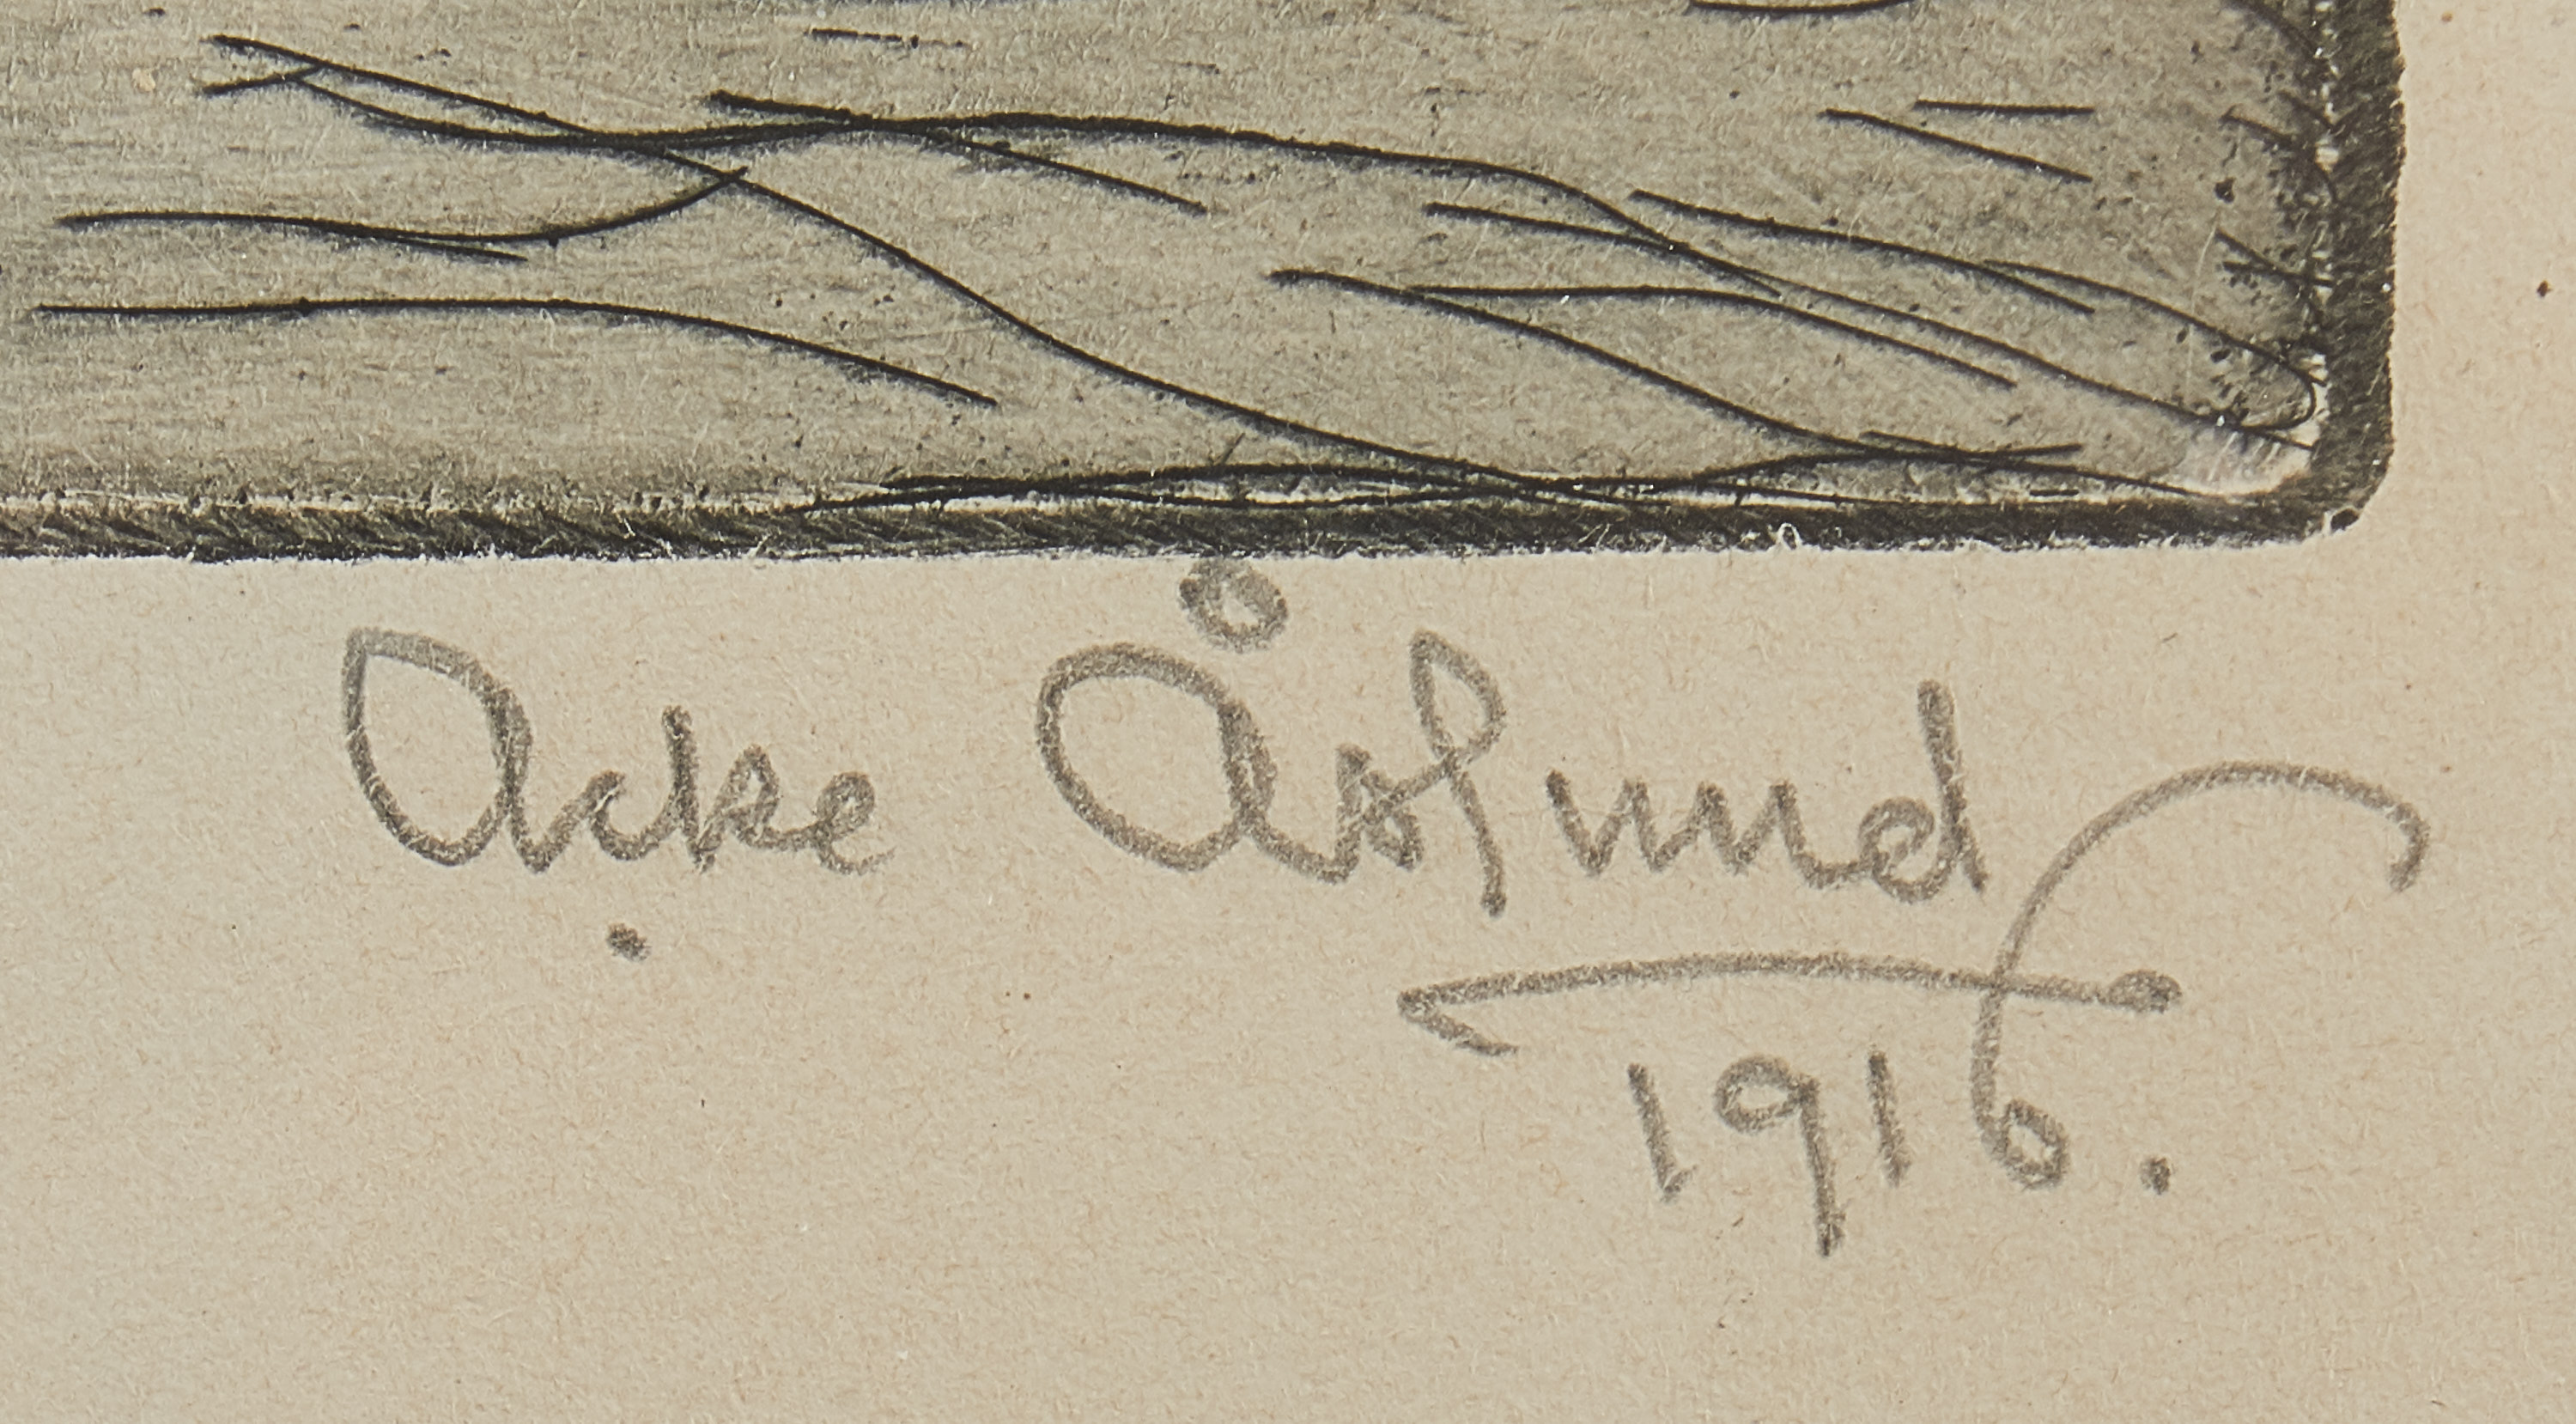 Acke Åslund
1916.